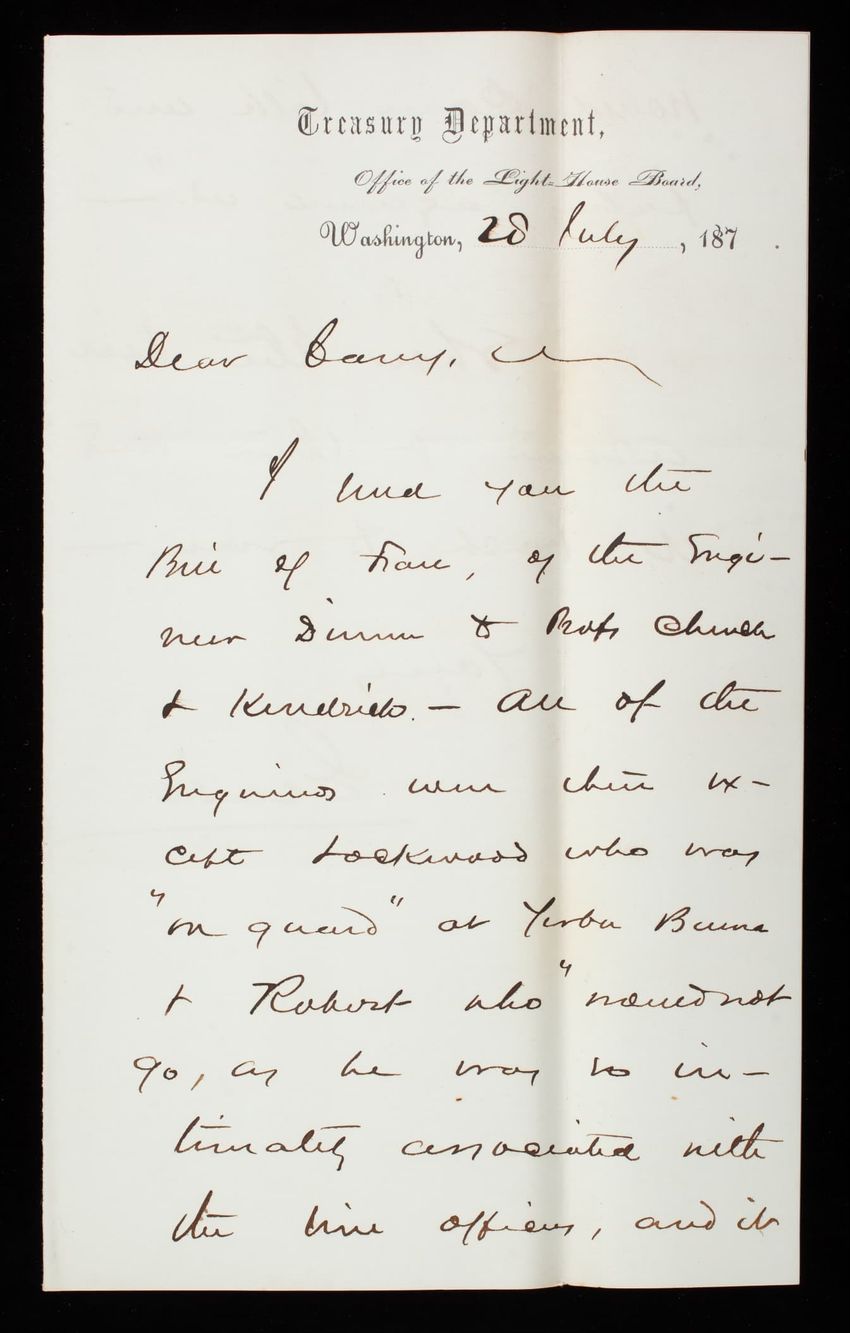 Treasury Department,
Office of the Light-House Board,
Washington, 28 July, 187 .
Dear Casey,
I send you the
Bill of Fare, of the Engi-
neer Dinner to Profs Church
& Kendrick. - All of the
Engineers were there ex-
cept Lockwood who was
"on guard" at Yerba Buena
& Robert who "would not
go, as he was so in-
timately associated with
the line officers, and it